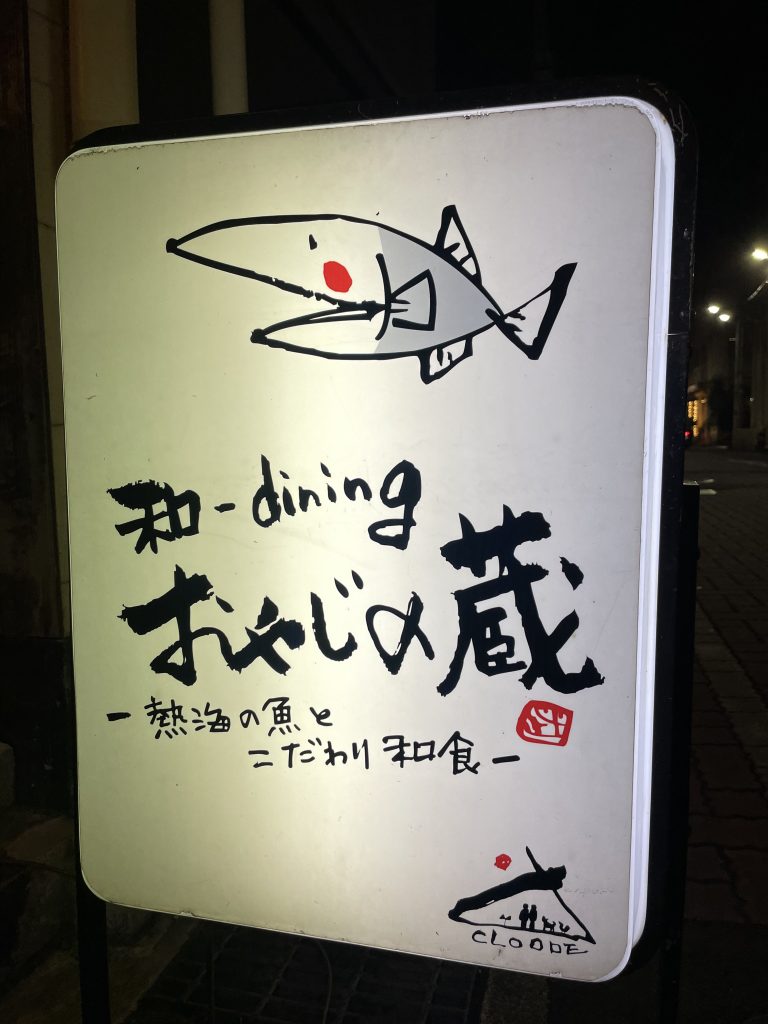 和-dining
おやじの蔵
-熱海の魚と
こだわり和食-
CLOODE